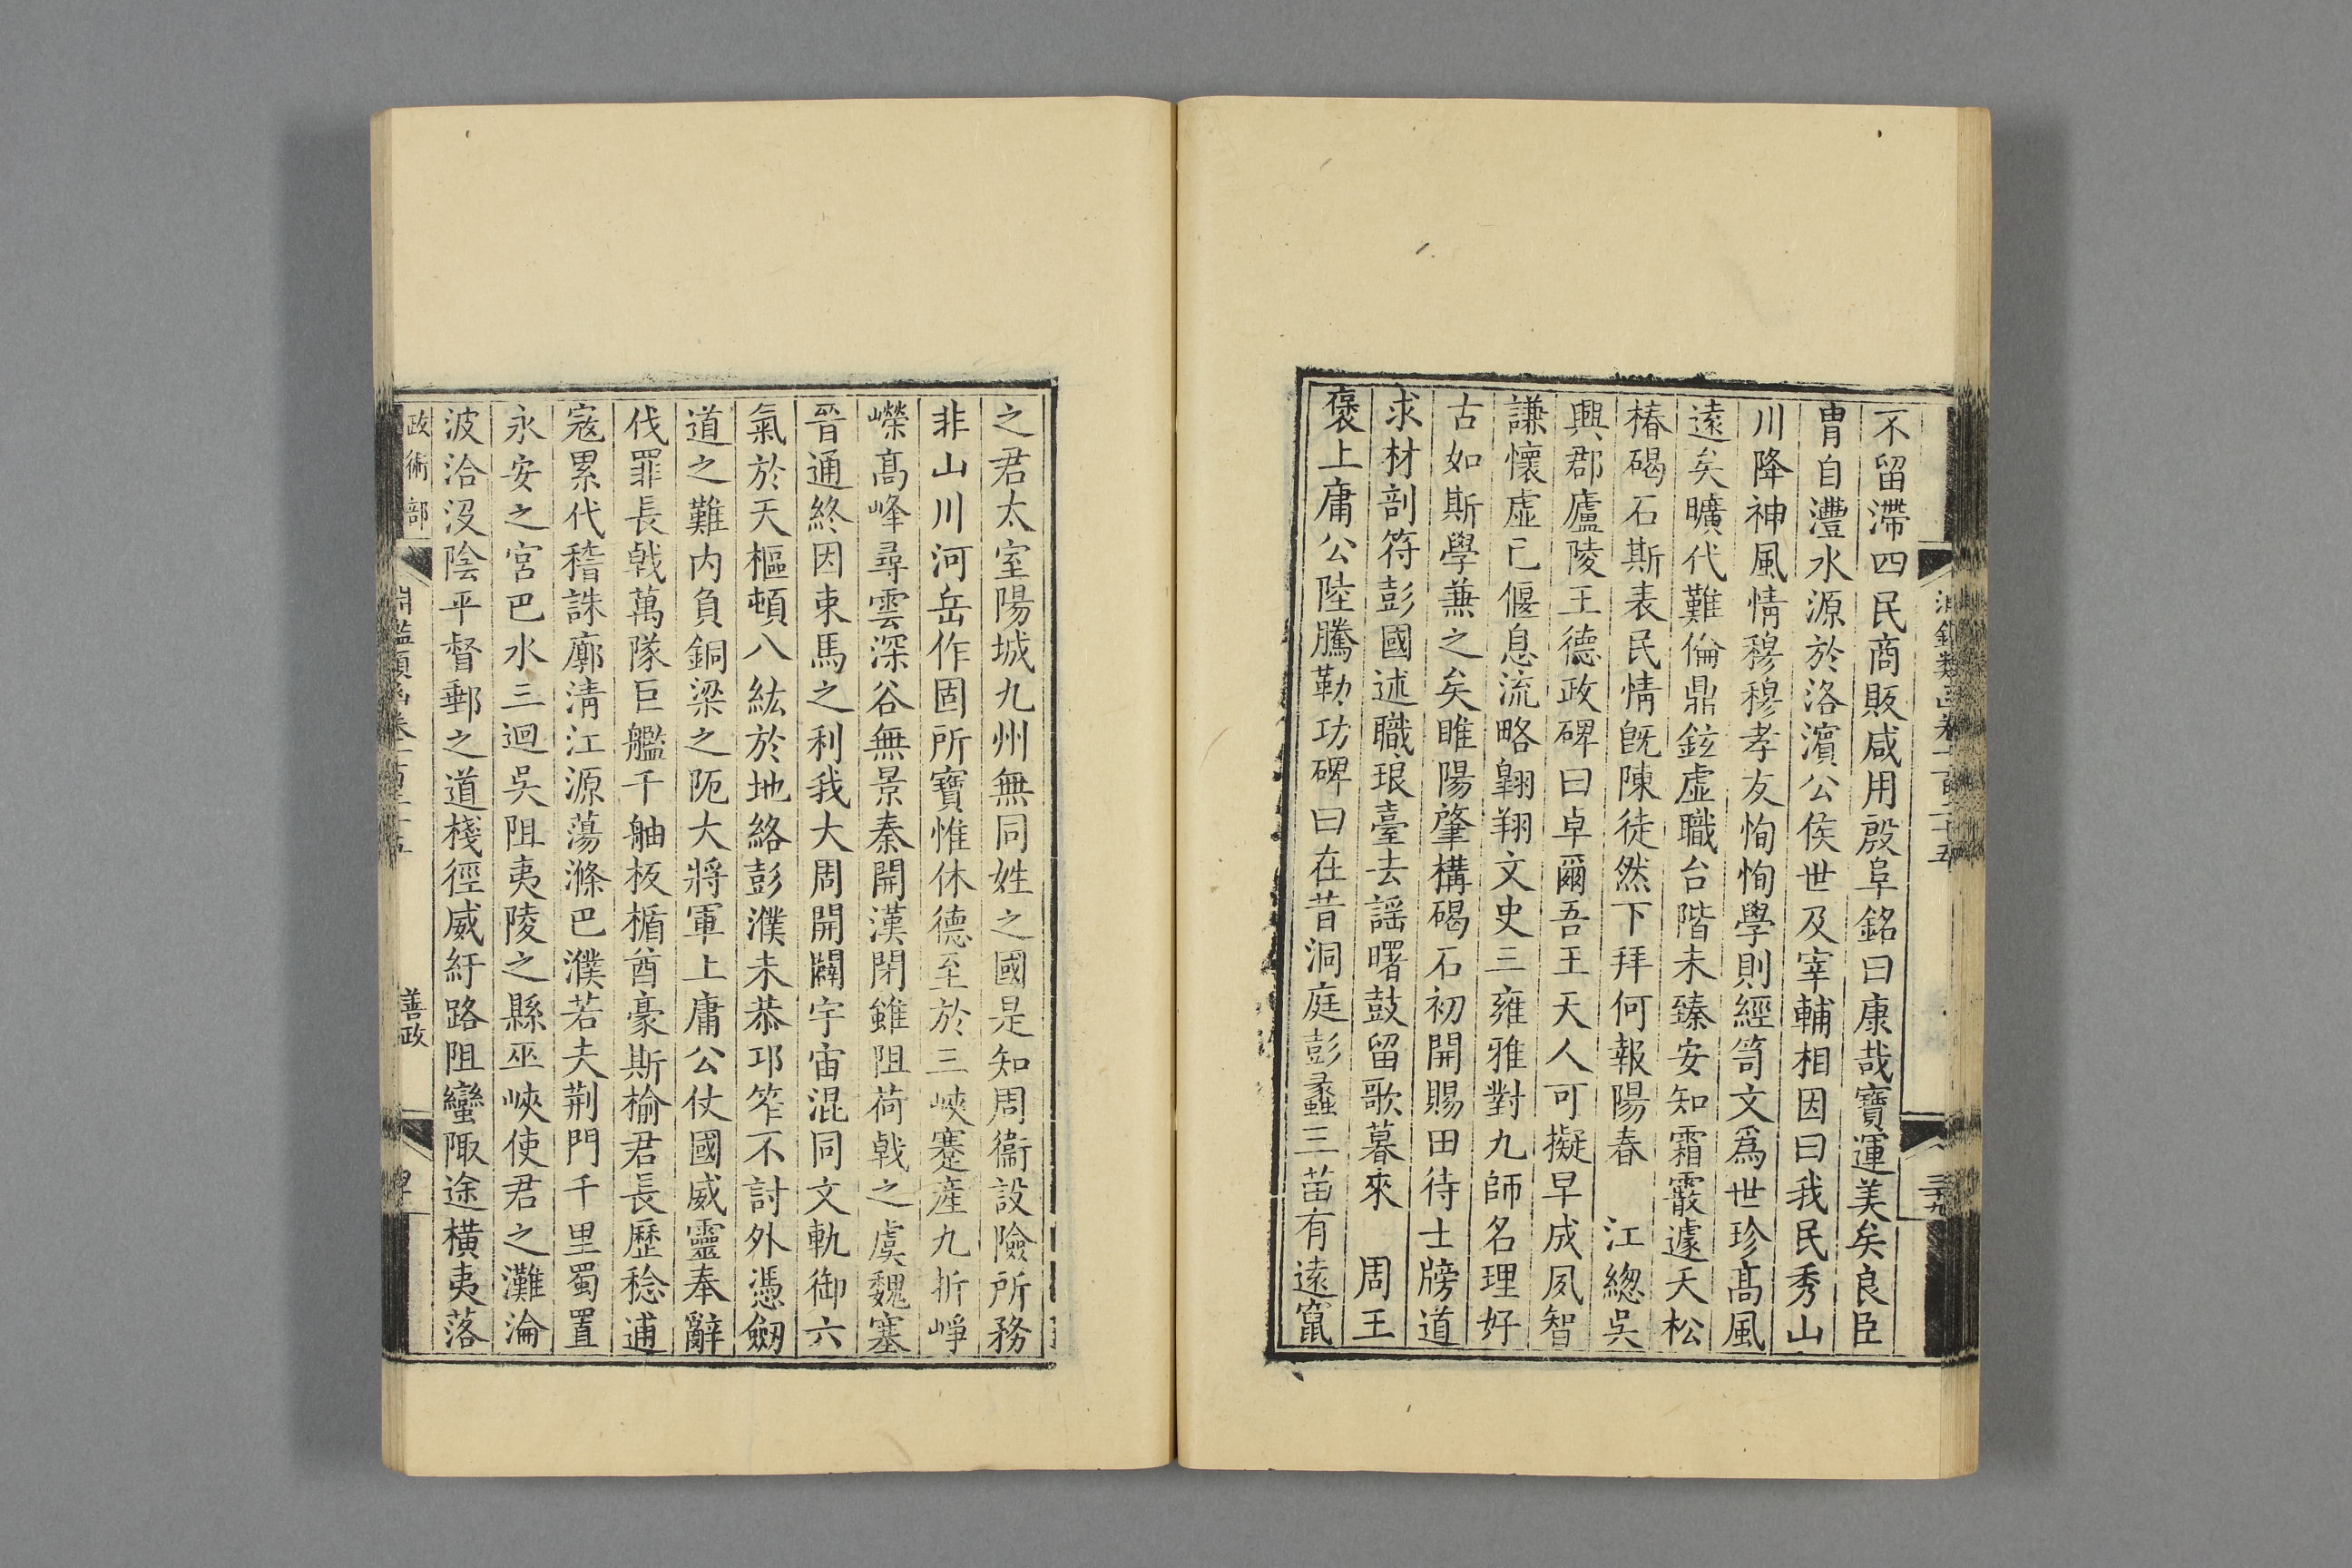 不留滯四民商販咸用殷阜銘曰康哉寶運美矣良臣
胄自灃水源於洛濱公侯世及宰輔相因曰我民秀山
川降神風情穆穆孝友恂恂學則經笥文爲世珍髙風
遠矣曠代難倫鼎鉉虛職台階未臻安知霜霰遽夭松
椿碣石斯表民情旣陳徒然下拜何報陽春　江緫吳
興郡廬陵王德政碑曰卓爾吾王天人可擬早成夙智
謙懷虛已偃息流略翺翔文史三雍雅對九師名理好
古如斯學兼之矣睢陽肇構碣石初開賜田待士牓道
求材剖符彭國述職琅臺去謡曙鼓留歌暮來　周王
褒上庸公陸騰勒功碑曰在昔洞庭彭蠡三苗有遠竄
之君太室陽城九州無同姓之國是知周衞設險所務
非山川河岳作固所寶惟休德至於三峽蹇產九折崢
嶸髙峰尋雲深谷無景秦開漢閉雖阻荷戟之虞魏塞
晉通終因束馬之利我大周開闢宇宙混同文軌御六
氣於天樞頓八紘於地絡彭濮未恭邛笮不討外憑劒
道之難内負銅梁之阨大將軍上庸公仗國威靈奉辭
伐罪長戟萬隊巨艦千舳板楯酋豪斯榆君長歷稔逋
寇累代稽誅廓淸江源蕩滌巴濮若夫荆門千里蜀置
永安之宮巴水三迴吳阻夷陵之縣巫峽使君之灘淪
波洽沒陰平督郵之道棧徑威紆路阻蠻陬途橫夷落
政術部
善政